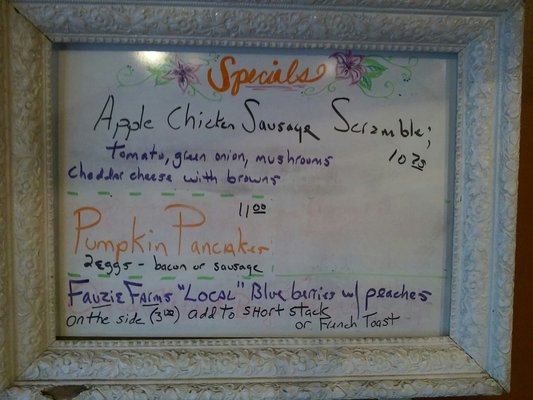 Specials
Apple Chicken Sausage Scramble;
Tomato, green onion, mushrooms 10.75
cheddar cheese with browns
11.00
Pumpkin Pancakes
2 eggs - bacon or sausage
Fauzie Farms "Local" Blueberries w/ peaches
on the side (3.00) add to short stack
or French Toast